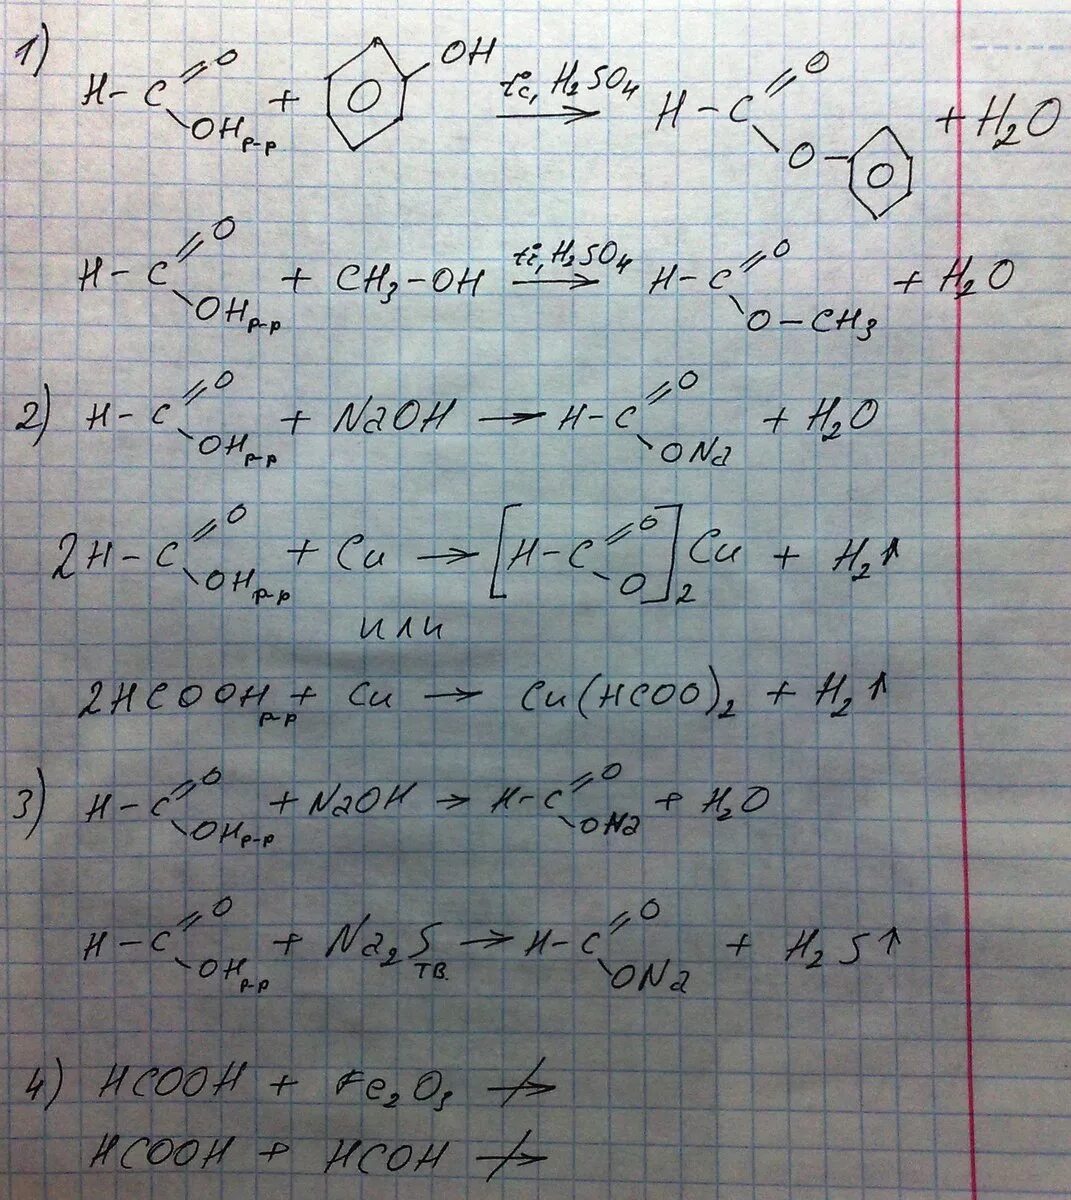 1) H-C=O OH р-р + OH t°, H2SO4 → H-C=O O- + H2O
H-C=O OH р-р + CH3-OH t°, H2SO4 → H-C=O O-CH3 + H2O
2) H-C=O OH р-р + NaOH → H-C=O ONa + H2O
2H-C=O OH р-р + Cu → [H-C=O O]2 Cu + H2↑
или
2HCOOH р-р + Cu → Cu(HCOO)2 + H2↑
3) H-C=O OH р-р + NaOH → H-C=O ONa + H2O
H-C=O OH р-р + Na2S тв. → H-C=O ONa + H2S↑
4) HCOOH + Fe2O3 ↛
HCOOH + HCOH ↛